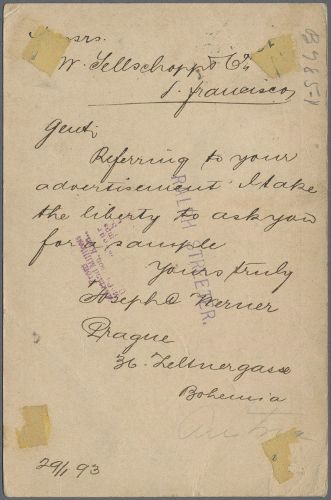 Messrs.
W. Sellschopp & Co.
S. Francisco
Gent,
Referring to your
advertisement I take
the liberty to ask you
for a sample
Yours truly
Joseph D Werner
Prague
36. Zeltnergasse
Bohemia
29/1 93
RALPH STREETER.